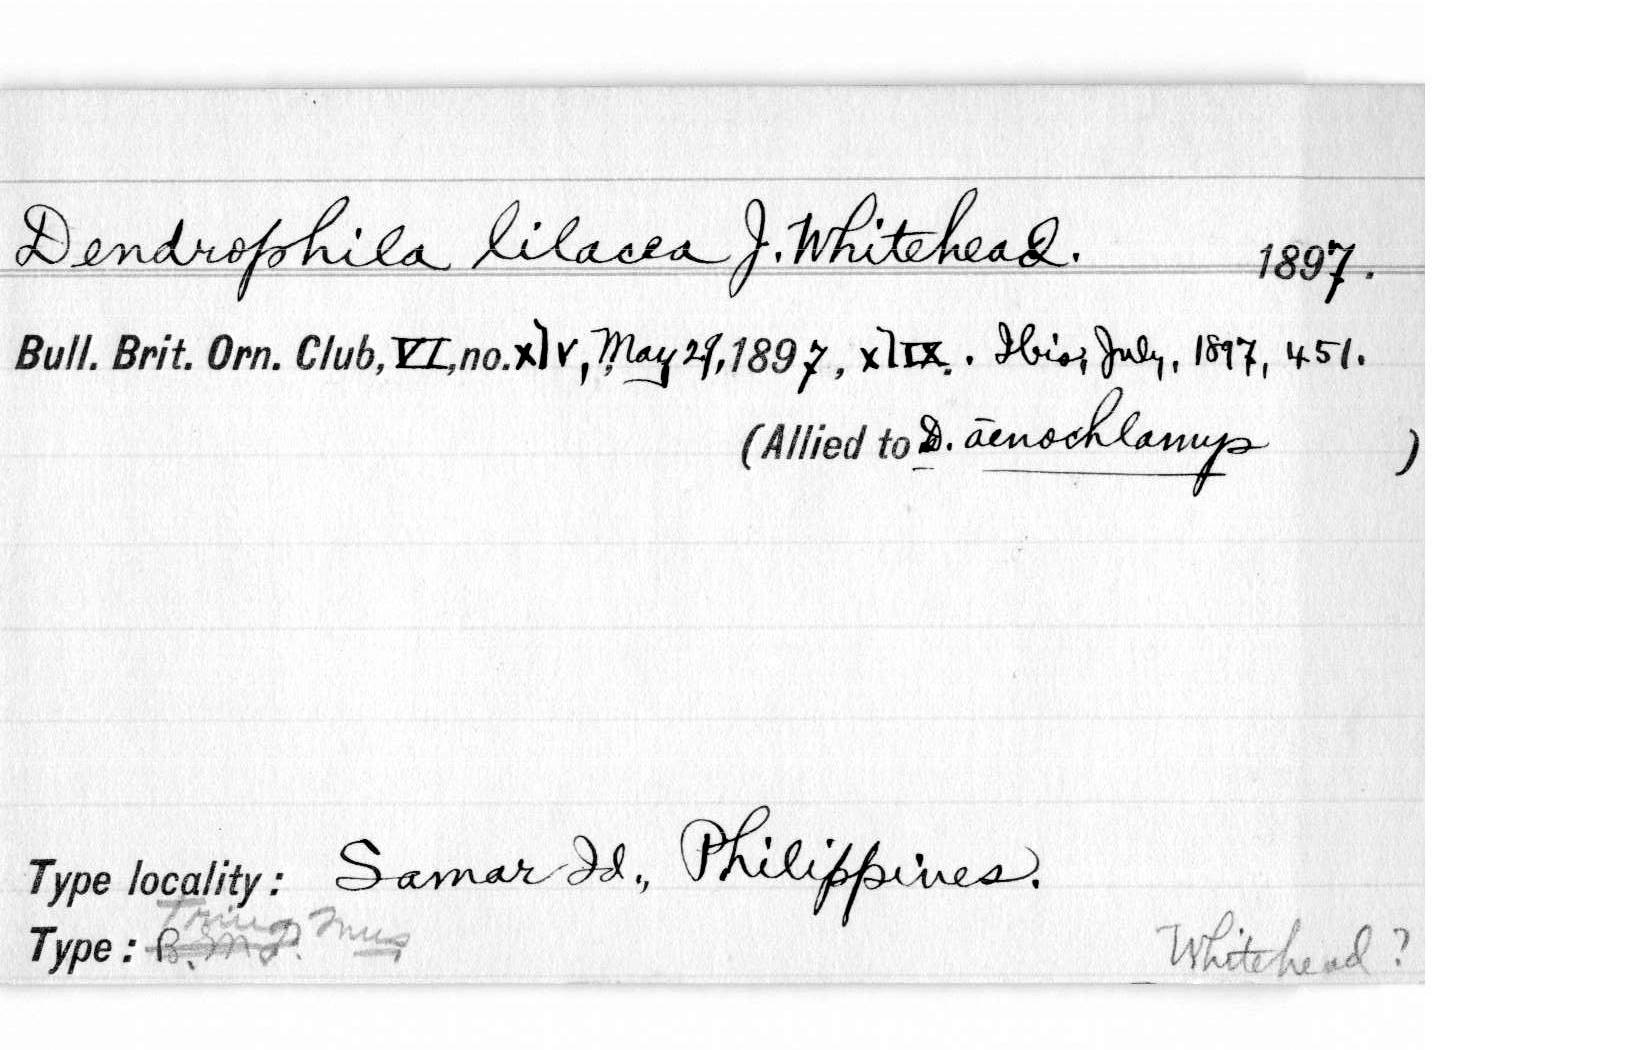 Dendrophila lilacea J. Whitehead. 1897.
Bull. Brit. Orn. Club, VI, no. xlv, May 29, 1897, xlix. Ibis, July, 1897, 451.
(Allied to D. äenochlamys )
Type locality: Samar Id., Philippines.
Tring Mus
Type: B.M. Whitehead?